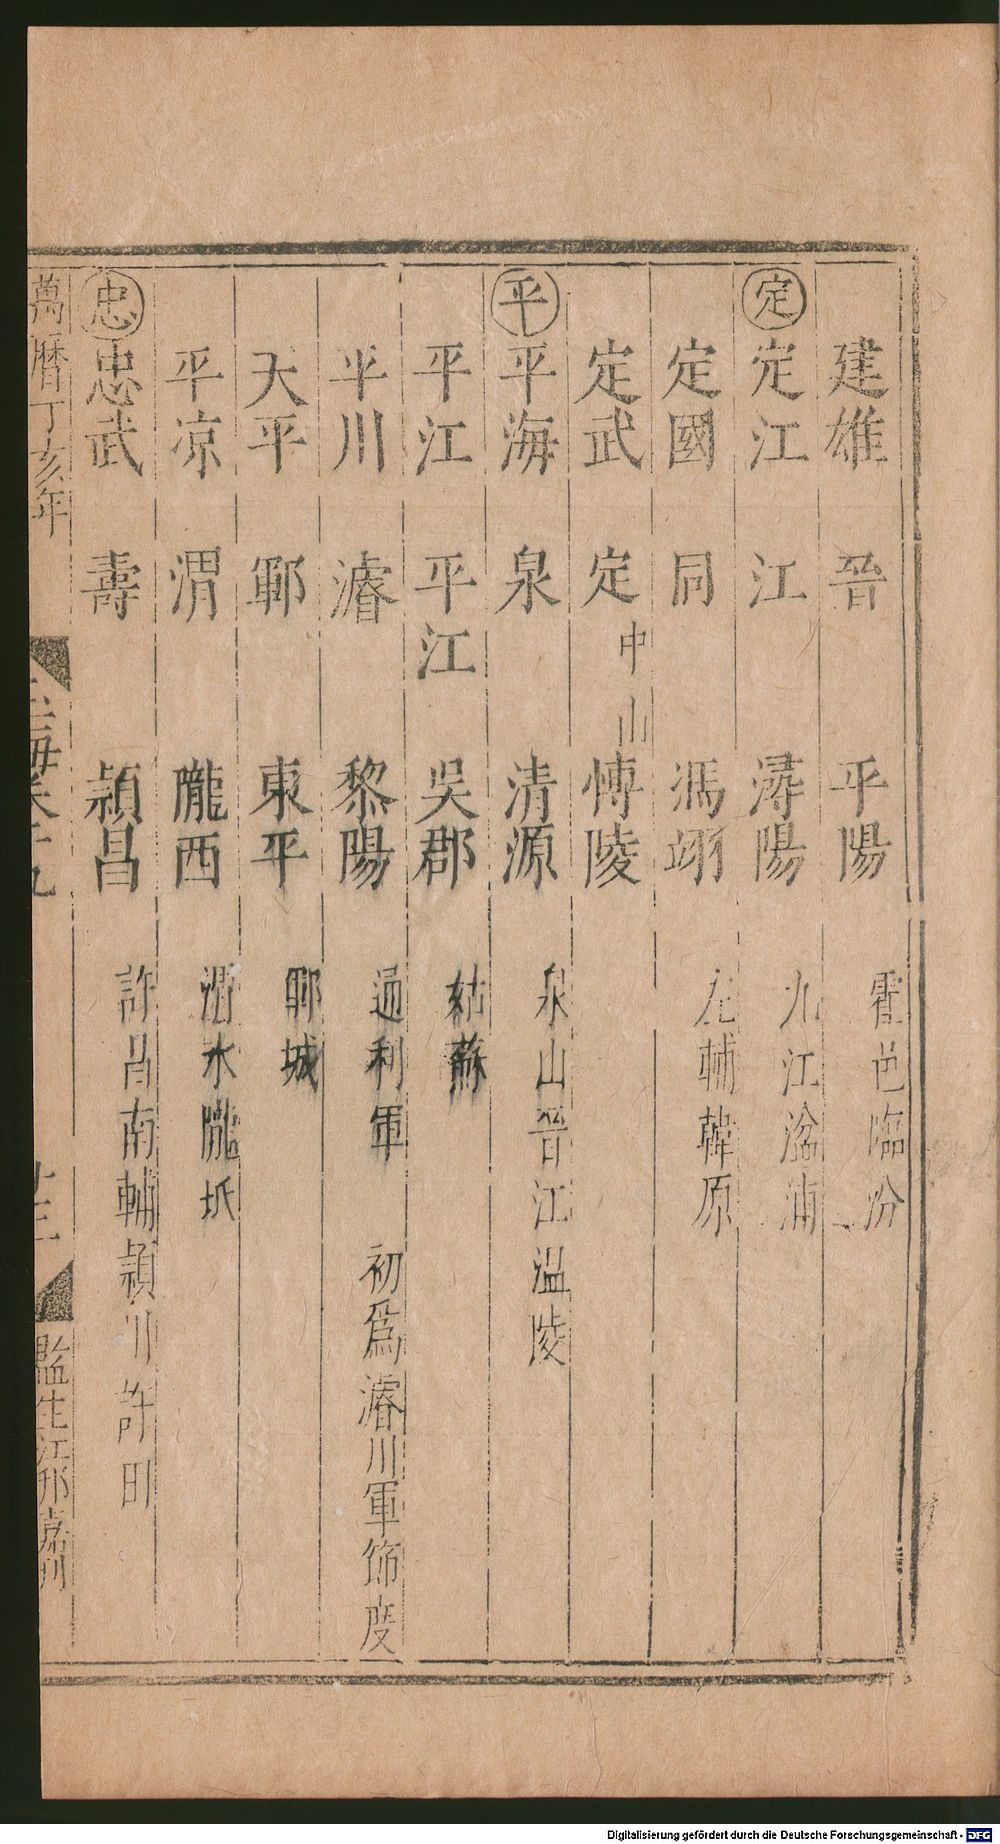 建雄 晉 平陽 霍邑臨汾
定 定江 江 潯陽 九江湓浦
定國 同 馮翊 左輔韓原
定武 定 中山 愽陵
平 平海 泉 清源 泉山晉江温陵
平江 平江 吳郡 姑蘇
平川 濬 黎陽 通利軍 初爲濬川軍節度
天平 鄆 東平 鄆城
平凉 渭 隴西 渭水隴坻
忠 忠武 壽 潁昌 許昌南輔潁川許田
萬曆丁亥年 玉海卷十九 十三 監生江邦嘉刊
Digitalisierung gefördert durch die Deutsche Forschungsgemeinschaft - DFG